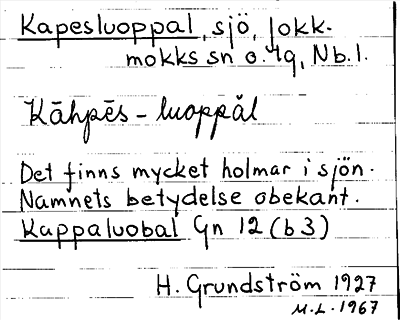 Kapesluoppal, sjö, Jokk-
mokks sn o. 49, Nb. l.
Kāhpēs - luoppăl
Det finns mycket holmar i sjön.
Namnets betydelse obekant.
Kappaluobal Gn 12 (b3)
H. Grundström 1927
M.L. 1967